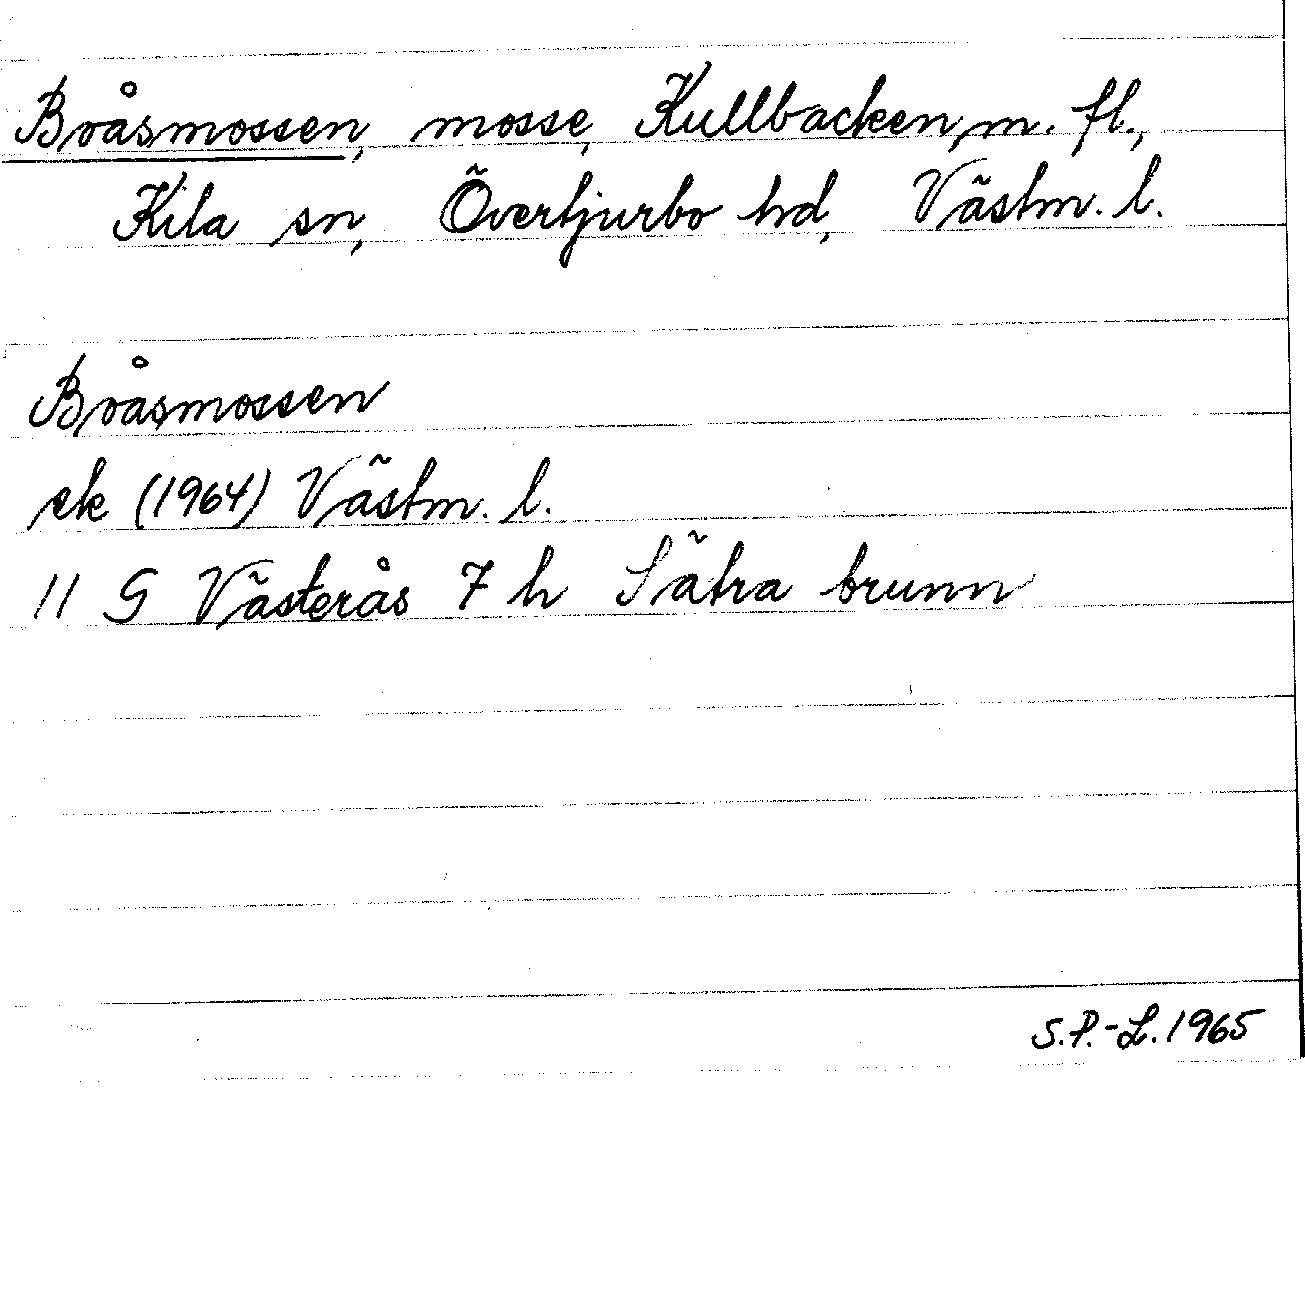 Bråsmossen, mosse, Kullbacken m. fl.,
Kila sn, Övertjurbo hd, Västm. l.
Bråsmossen
ek (1964) Västm. l.
11 G Västerås 7 h Sätra brunn
S.P.-L. 1965